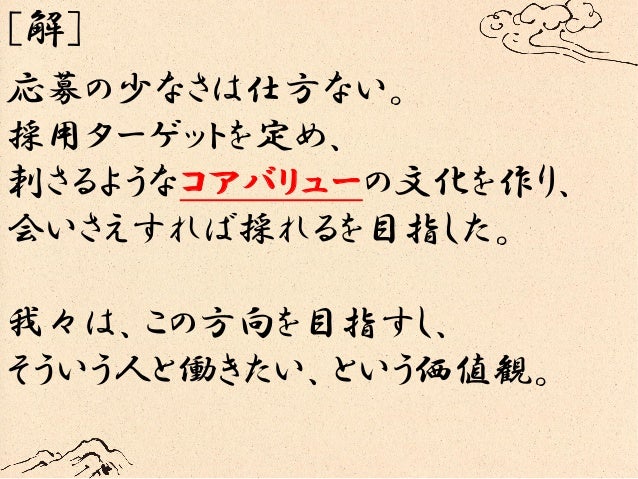 [解]
応募の少なさは仕方ない。
採用ターゲットを定め、
刺さるようなコアバリューの文化を作り、
会いさえすれば採れるを目指した。
我々は、この方向を目指すし、
そういう人と働きたい、という価値観。